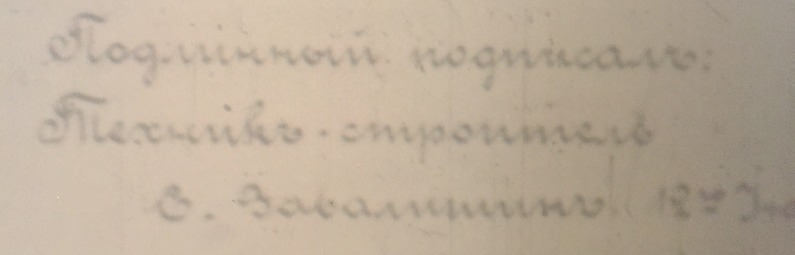 Подлинный подписалъ:
Техникъ-строитель
З. Завалишинъ 12го